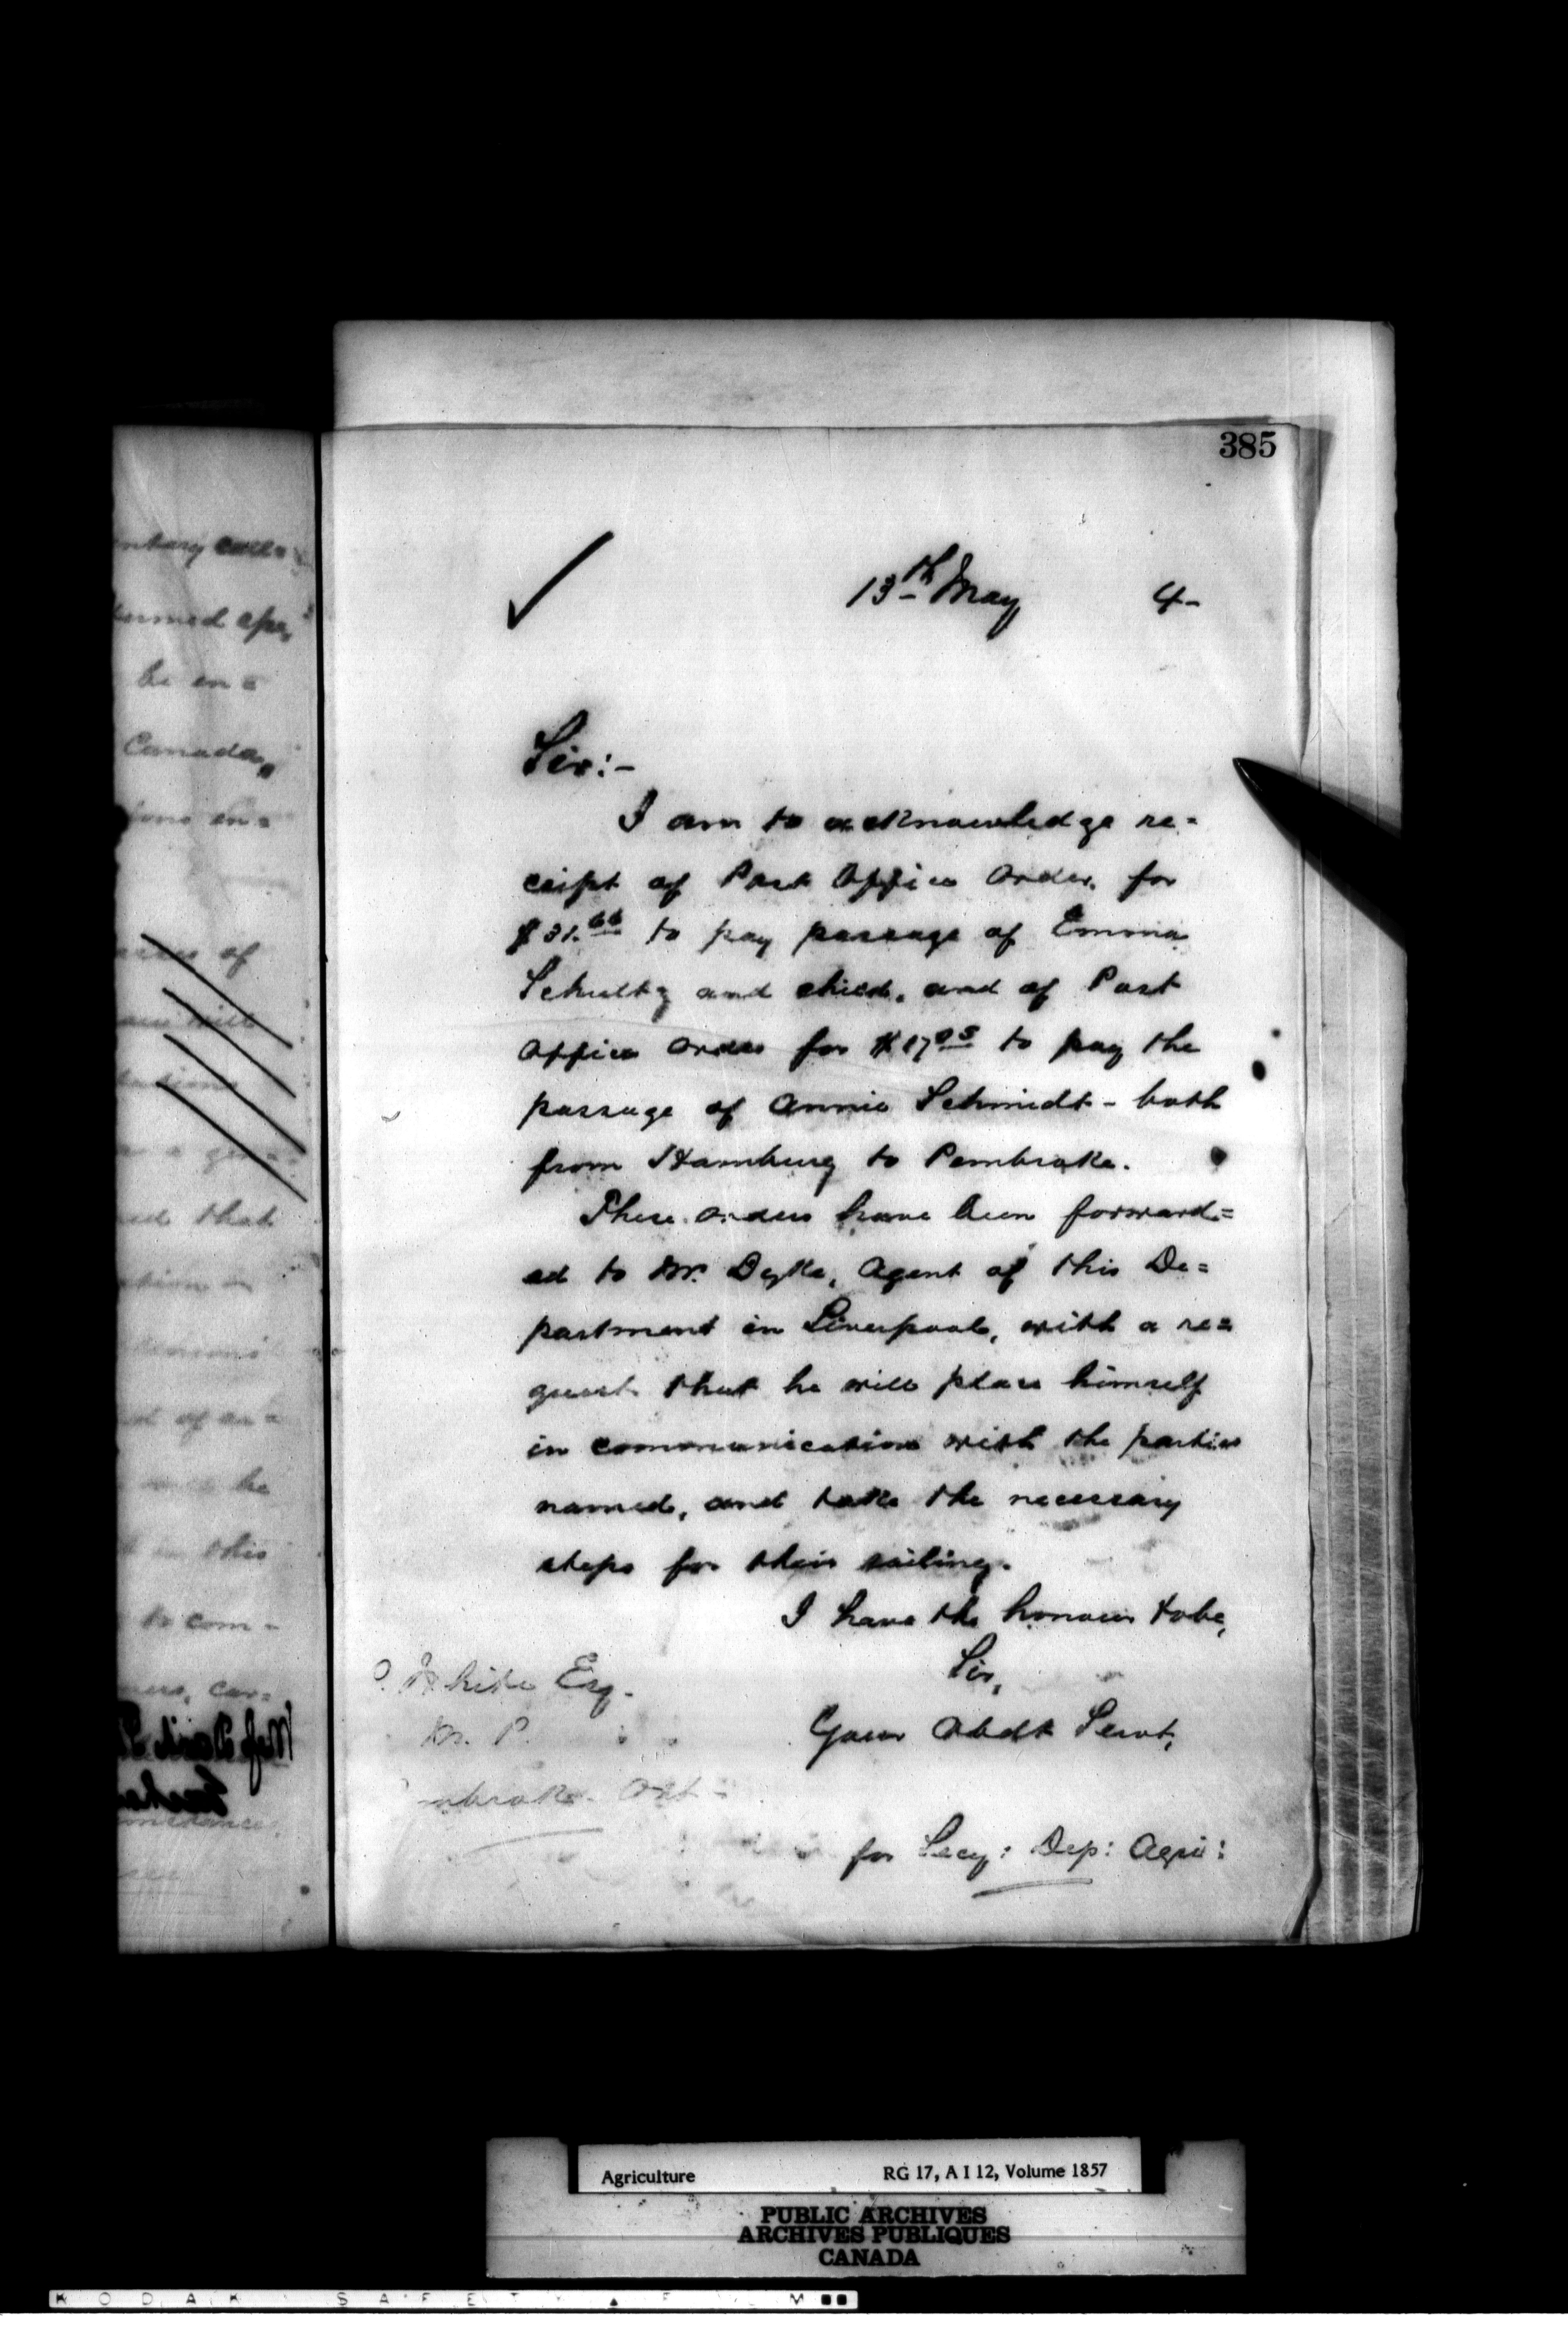 385
13th May 4-
Sir:-
I am to acknowledge re=
ceipt of Post Office Order, for
$31.66 to pay passage of Emma
Schultz and child, and of Post
Office Order for $17.05 to pay the
passage of Annie Schmidt - both
from Hamburg to Pembroke.
These orders have been forward=
ed to Mr. Dyke, Agent of this De=
partment in Liverpool, with a re=
quest that he will place himself
in communication with the parties
named, and take the necessary
steps for their sailing.
I have the honour to be,
Sir,
Your Obdt Servt,
White Esq.
M. P.
mbroke. Ont-
for Secy: Dep: Agri:
be en=
Canada,
en=
of
will
that
of
be
this
to com-
Agriculture RG 17, A I 12, Volume 1857
PUBLIC ARCHIVES
ARCHIVES PUBLIQUES
CANADA
KODAK SAFETY FILM